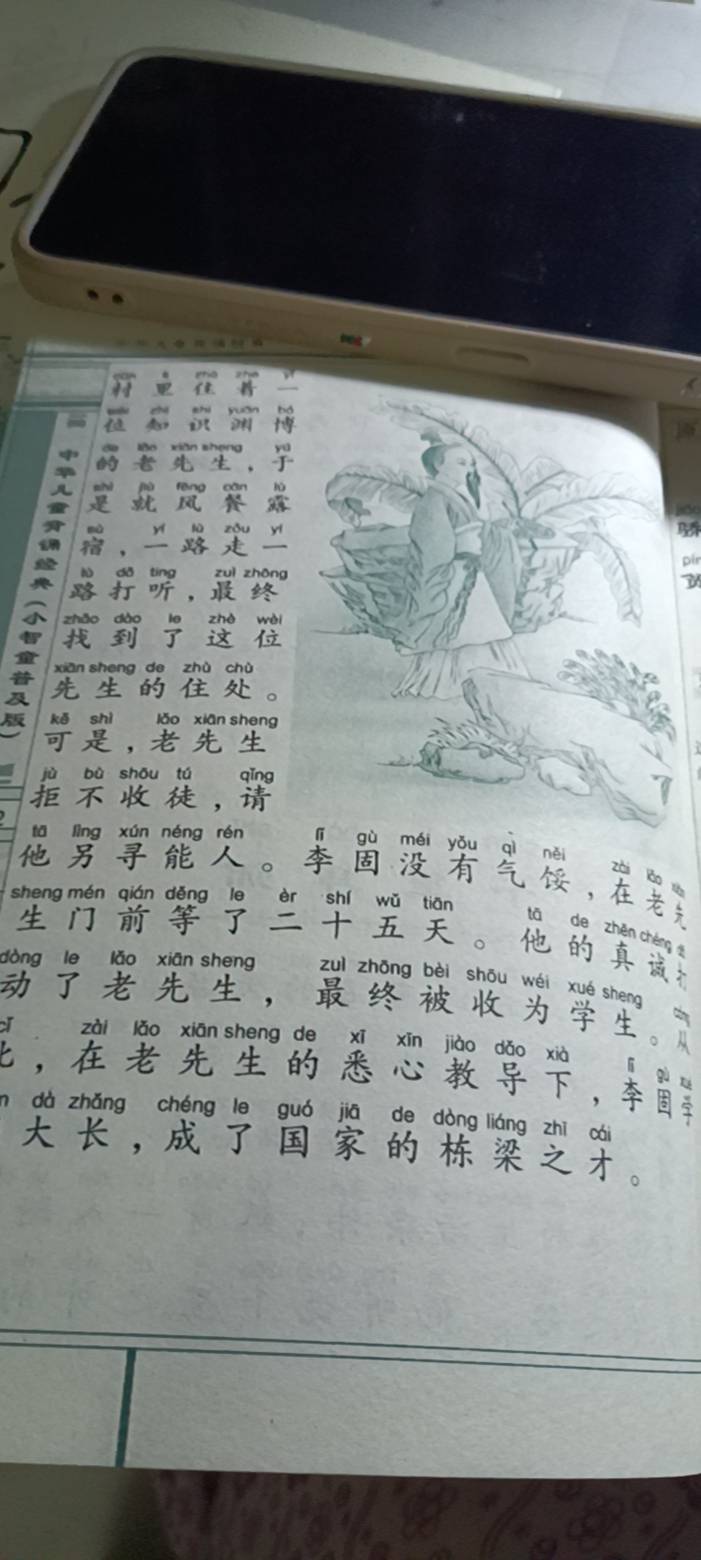 cūn lǐ zhù zhe yí
村里住着一
wèi zhī shi yuān bó
位知识渊博
de lǎo xiān sheng yú
的老先生，于
shì jiù fēng cān lù
是就风餐露
sù yí lù zǒu yí
宿，一路走一
lù dǎ tīng zuì zhōng
路打听，最终
zhǎo dào le zhè wèi
找到了这位
xiān sheng de zhù chù
先生的住处。
kě shì lǎo xiān sheng
可是，老先生
jù bù shōu tú qǐng
拒不收徒，请
tā lìng xún néng rén lǐ gù méi yǒu qì něi zài lǎo xiān
他另寻能人。李固没有气馁，在老先
sheng mén qián děng le èr shí wǔ tiān tā de zhēn chéng dǎ
生门前等了二十五天。他的真诚打
dòng le lǎo xiān sheng zuì zhōng bèi shōu wéi xué sheng cóng
动了老先生，最终被收为学生。从
cǐ zài lǎo xiān sheng de xī xīn jiào dǎo xià lǐ gù xué
，在老先生的悉心教导下，李固学
dà zhǎng chéng le guó jiā de dòng liáng zhī cái
大长，成了国家的栋梁之才。
中华儿童背诵经典（小智童普及版）